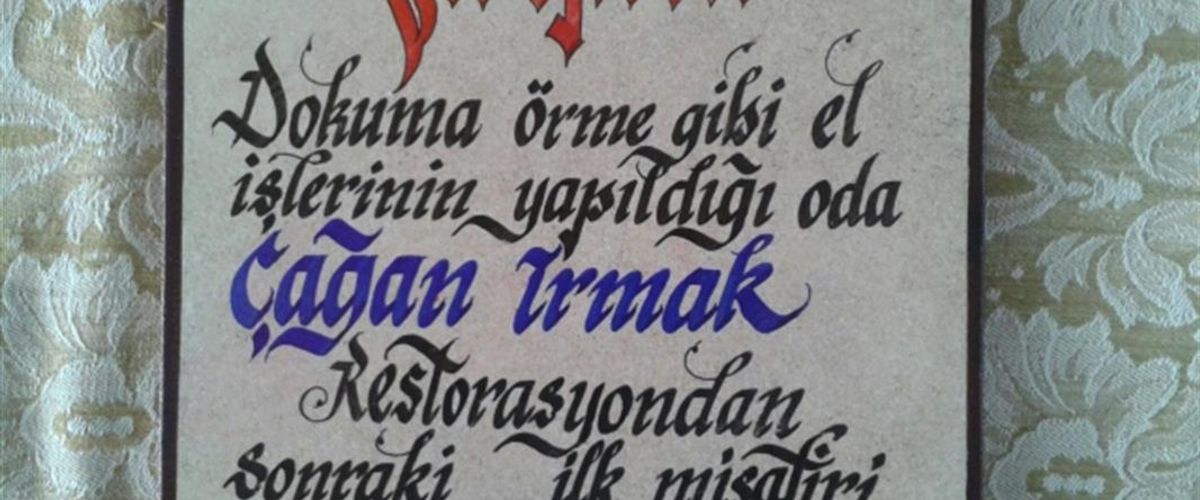 Dokuma örme gibi el
işlerinin yapıldığı oda
Çağan Irmak
Restorasyondan
sonraki ilk misafiri